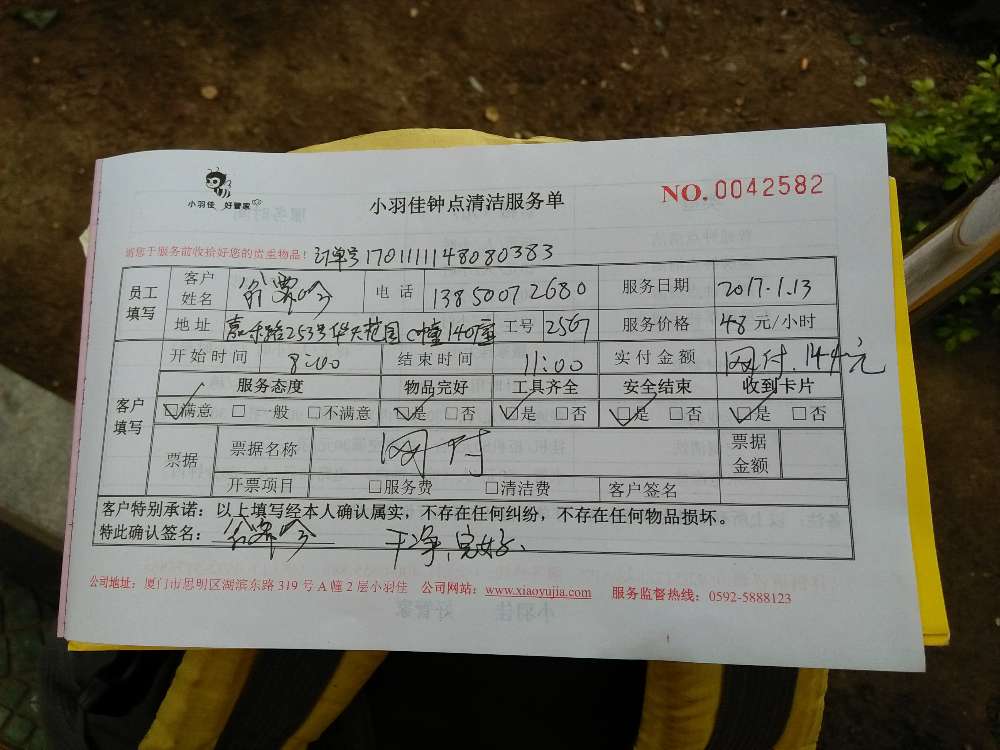 小羽佳 好管家
小羽佳钟点清洁服务单
NO. 0042582
请您于服务前收拾好您的贵重物品！ 订单号 1701111148080383
员工填写 客户姓名 电话 13850072680 服务日期 2017.1.13
地址 嘉禾路253号华天花园C幢1407室 工号 2567 服务价格 48元/小时
开始时间 8:00 结束时间 11:00 实付金额 网付.144元
客户填写 服务态度 物品完好 工具齐全 安全结束 收到卡片
☑满意 □一般 □不满意 ☑是 □否 ☑是 □否 ☑是 □否 ☑是 □否
票据 票据名称 网付 票据金额
开票项目 □服务费 □清洁费 客户签名
客户特别承诺：以上填写经本人确认属实，不存在任何纠纷，不存在任何物品损坏。
特此确认签名： 干净、完好、
公司地址：厦门市思明区湖滨东路 319 号 A 幢 2 层小羽佳 公司网站：www.xiaoyujia.com 服务监督热线：0592-5888123